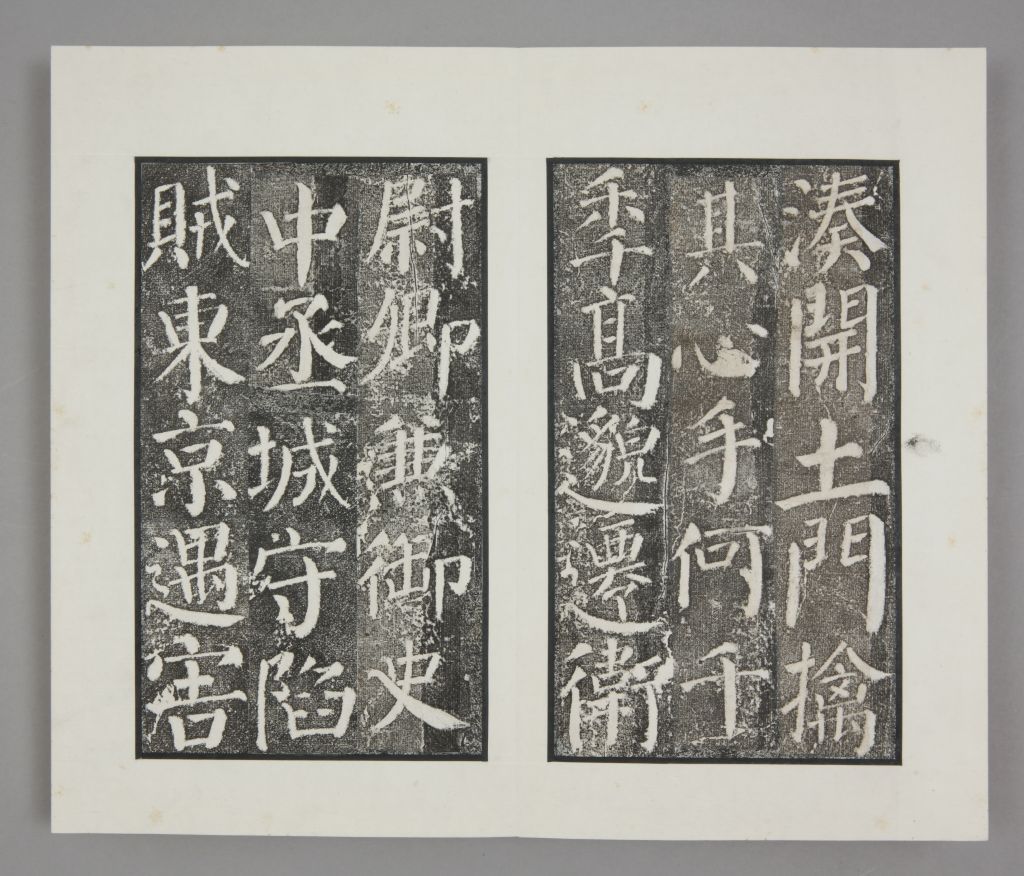 湊開土門擒
其心手何千
秊髙邈遷衛
尉卿兼御史
中丞城守陷
賊東京遇害